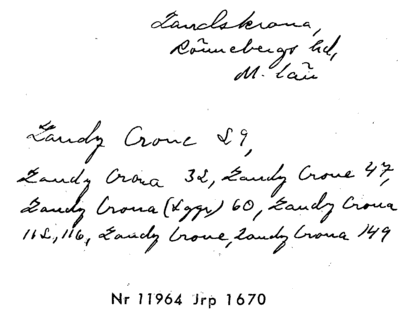 Landskrona,
Rönnebergs hd,
M. län
Landz Crone 29,
Landz Crona 32, Landz Crone 47,
Landz Crona (2 ggr) 60, Landz Crona
112, 116, Landz Crone, Landz Crona 149
Nr 11964 Jrp 1670